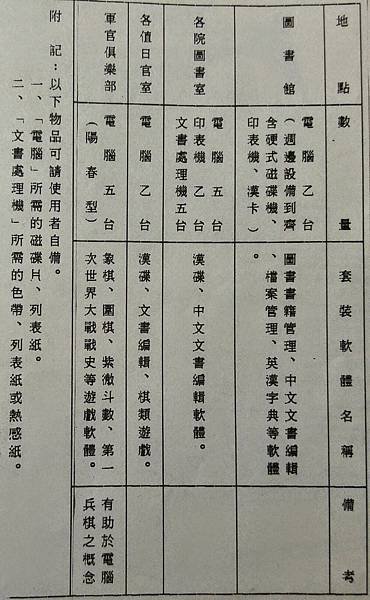 地點
數量
套裝軟體名稱
備考
圖書館
電腦乙台
（週邊設備到齊
含硬式磁碟機、
印表機、漢卡）
圖書書籍管理、中文文書編輯
、檔案管理、英漢字典等軟體
。
各院圖書室
電腦乙台
印表機乙台
文書處理機五台
漢碟、中文文書編輯軟體。
各值日官室
電腦乙台
漢碟、文書編輯、棋類遊戲。
軍官俱樂部
電腦五台
（陽春型）
象棋、圍棋、紫微斗數、第一
次世界大戰戰史等遊戲軟體。
有助於電腦
兵棋之概念
附記：以下物品可請使用者自備。
一、「電腦」所需的磁碟片、列表紙。
二、「文書處理機」所需的色帶、列表紙或熱感紙。